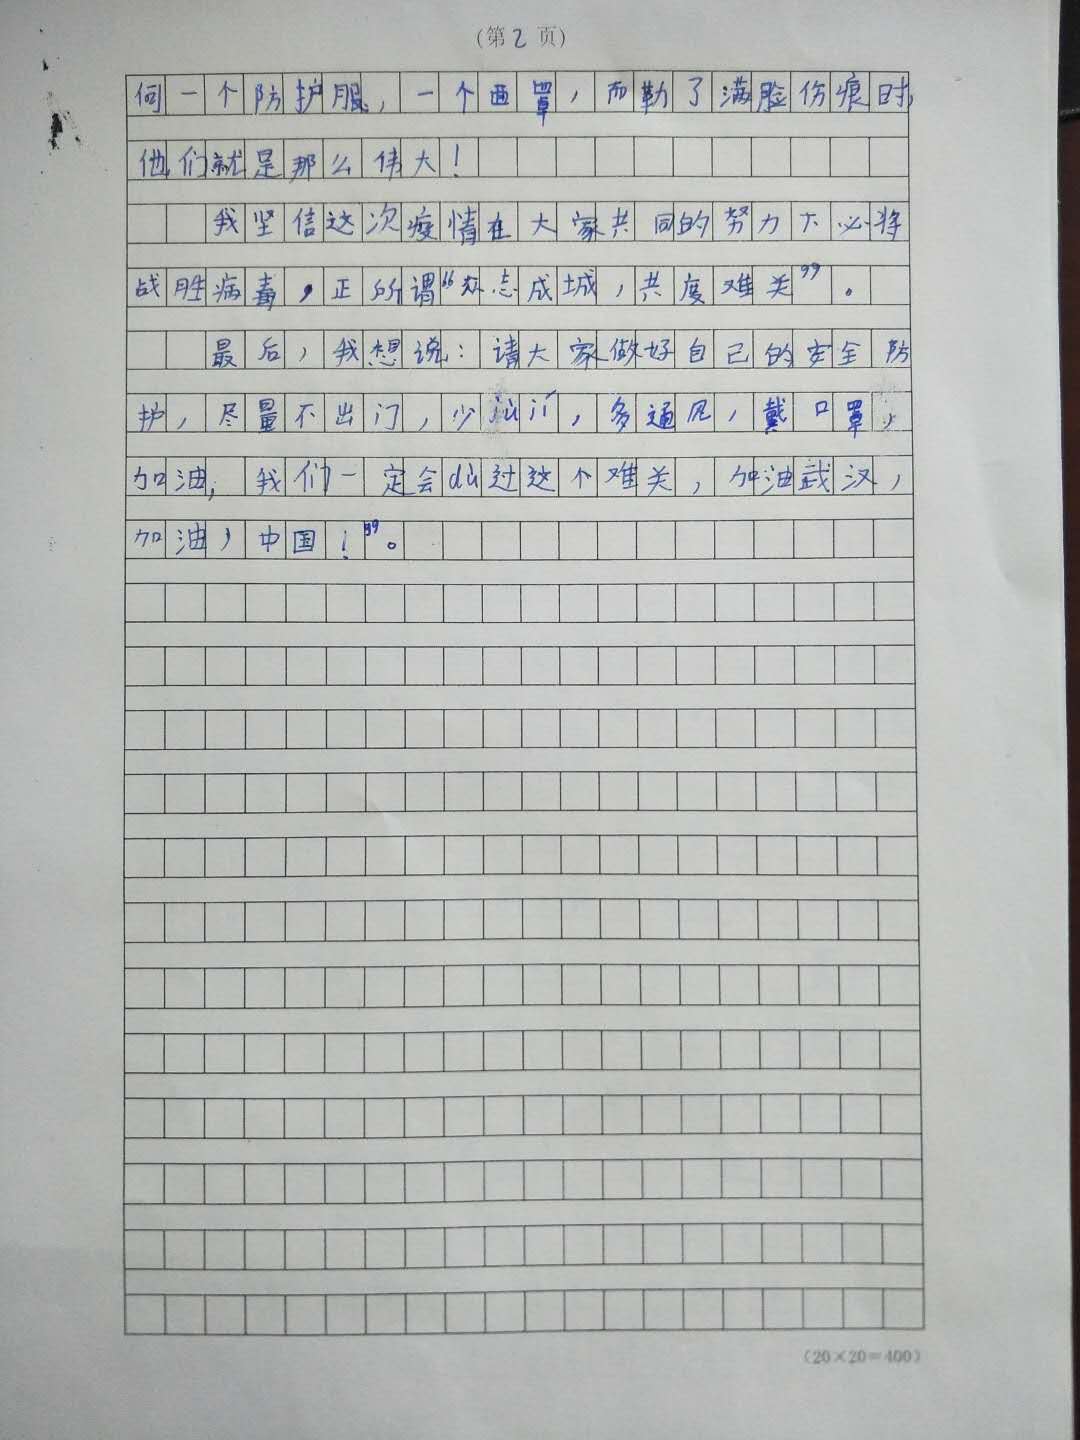 (第2页)
何一个防护服，一个面罩，而勒了满脸伤痕时，
他们就是那么伟大！
我坚信这次疫情在大家共同的努力下必将
战胜病毒，正所谓“众志成城，共度难关”。
最后，我想说：请大家做好自己的安全防
护，尽量不出门，少jù jí，多通风，戴口罩，
加油，我们一定会dù过这个难关，加油武汉，
加油，中国！”。
(20×20=400)